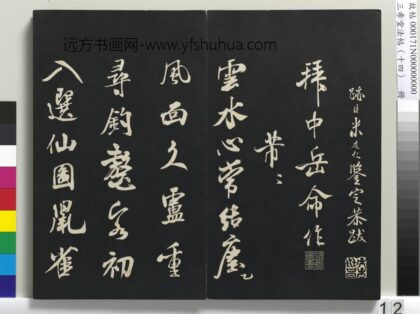 远方书画网-www.yfshuhua.com
故帖000171N000000000
三希堂法帖（十四） 冊
跡臣米友仁鑒定恭跋
拜中岳命作
芾上
雲水心常結塵
風面久盧重
尋釣鼇客初
入選仙圖鼠雀
12